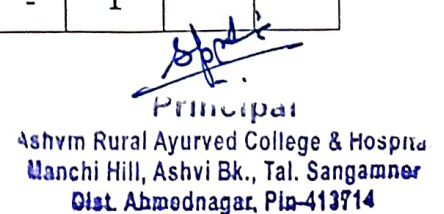 - 1
Principal
Ashvin Rural Ayurved College & Hospita
Manchi Hill, Ashvi Bk., Tal. Sangamner
Dist. Ahmednagar, Pin-413714